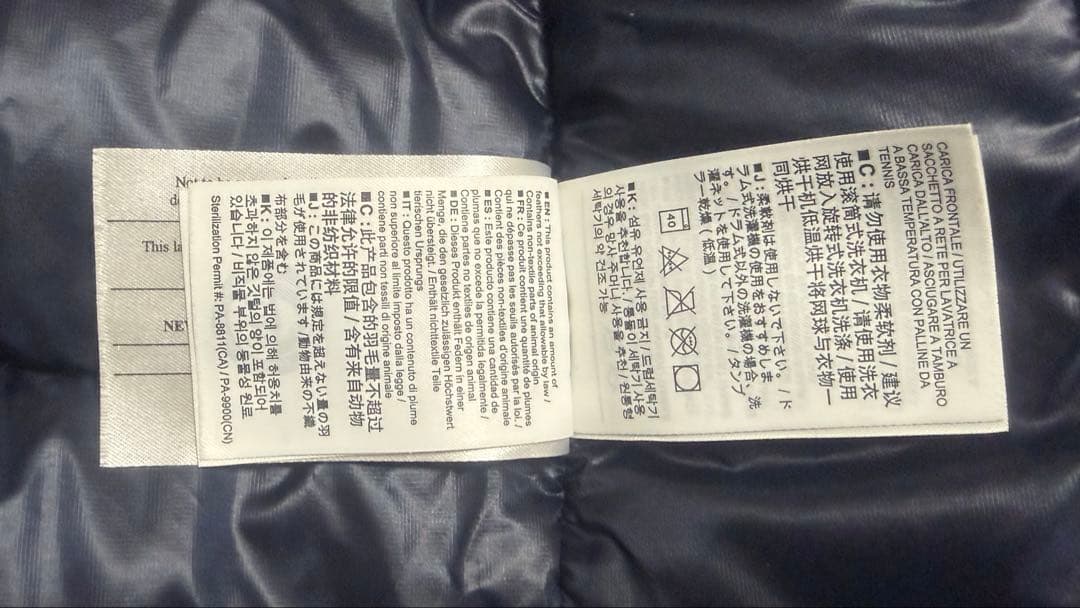 Not to
de
This la
NEV
■ EN : This product contains an amount of
feathers not exceeding that allowable by law /
Contains non-textile parts of animal origin
■ FR : Ce produit contient une quantité de plumes
qui ne dépasse pas les seuils autorisés par la loi. /
Contient des pièces non-textiles d'origine animale
■ ES : Este producto contiene una cantidad de
plumas que no excede la permitida legalmente /
Contiene partes no textiles de origen animal
■ DE : Dieses Produkt enthält Federn in einer
Menge, die den gesetzlich zulässigen Höchstwert
nicht übersteigt. / Enthält nichttextile Teile
tierischen Ursprungs
■ IT : Questo prodotto ha un contenuto di piume
non superiore al limite imposto dalla legge /
contiene parti non tessili di origine animale
■C : 此产品包含的羽毛量不超过
法律允许的限值 / 含有来自动物
的非纺织材料
■J : この商品には規定を超えない量の羽
毛が使用されています / 動物由来の不織
布部分を含む
■K : 이 제품에는 법에 의해 허용치를
초과하지 않은 깃털의 양이 포함되어
있습니다 / 비직물 부위의 동물성 원료
Sterilization Permit #: PA-8811(CA) / PA-9900(CN)
CARICA FRONTALE / UTILIZZARE UN
SACCHETTO A RETE PER LAVATRICE A
CARICA DALL'ALTO / ASCIUGARE A TAMBURO
A BASSA TEMPERATURA CON PALLINE DA
TENNIS
■C : 请勿使用衣物柔软剂 / 建议
使用滚筒式洗衣机 / 请使用洗衣
网放入旋转式洗衣机洗涤 / 使用
烘干机低温烘干将网球与衣物一
同烘干
■J : 柔軟剤は使用しないで下さい。 / ド
ラム式洗濯機の使用をおすすめしま
す。 / ドラム式以外の洗濯機の場合、洗
濯ネットを使用して下さい。 / タンブ
ラー乾燥 ( 低温 )
40
■K : 섬유 유연제 사용 금지 / 드럼세탁기
사용을 추천합니다. / 통돌이 세탁기 사용
의 경우 망사 주머니 사용을 추천 / 원통형
세탁기의 약 건조 가능